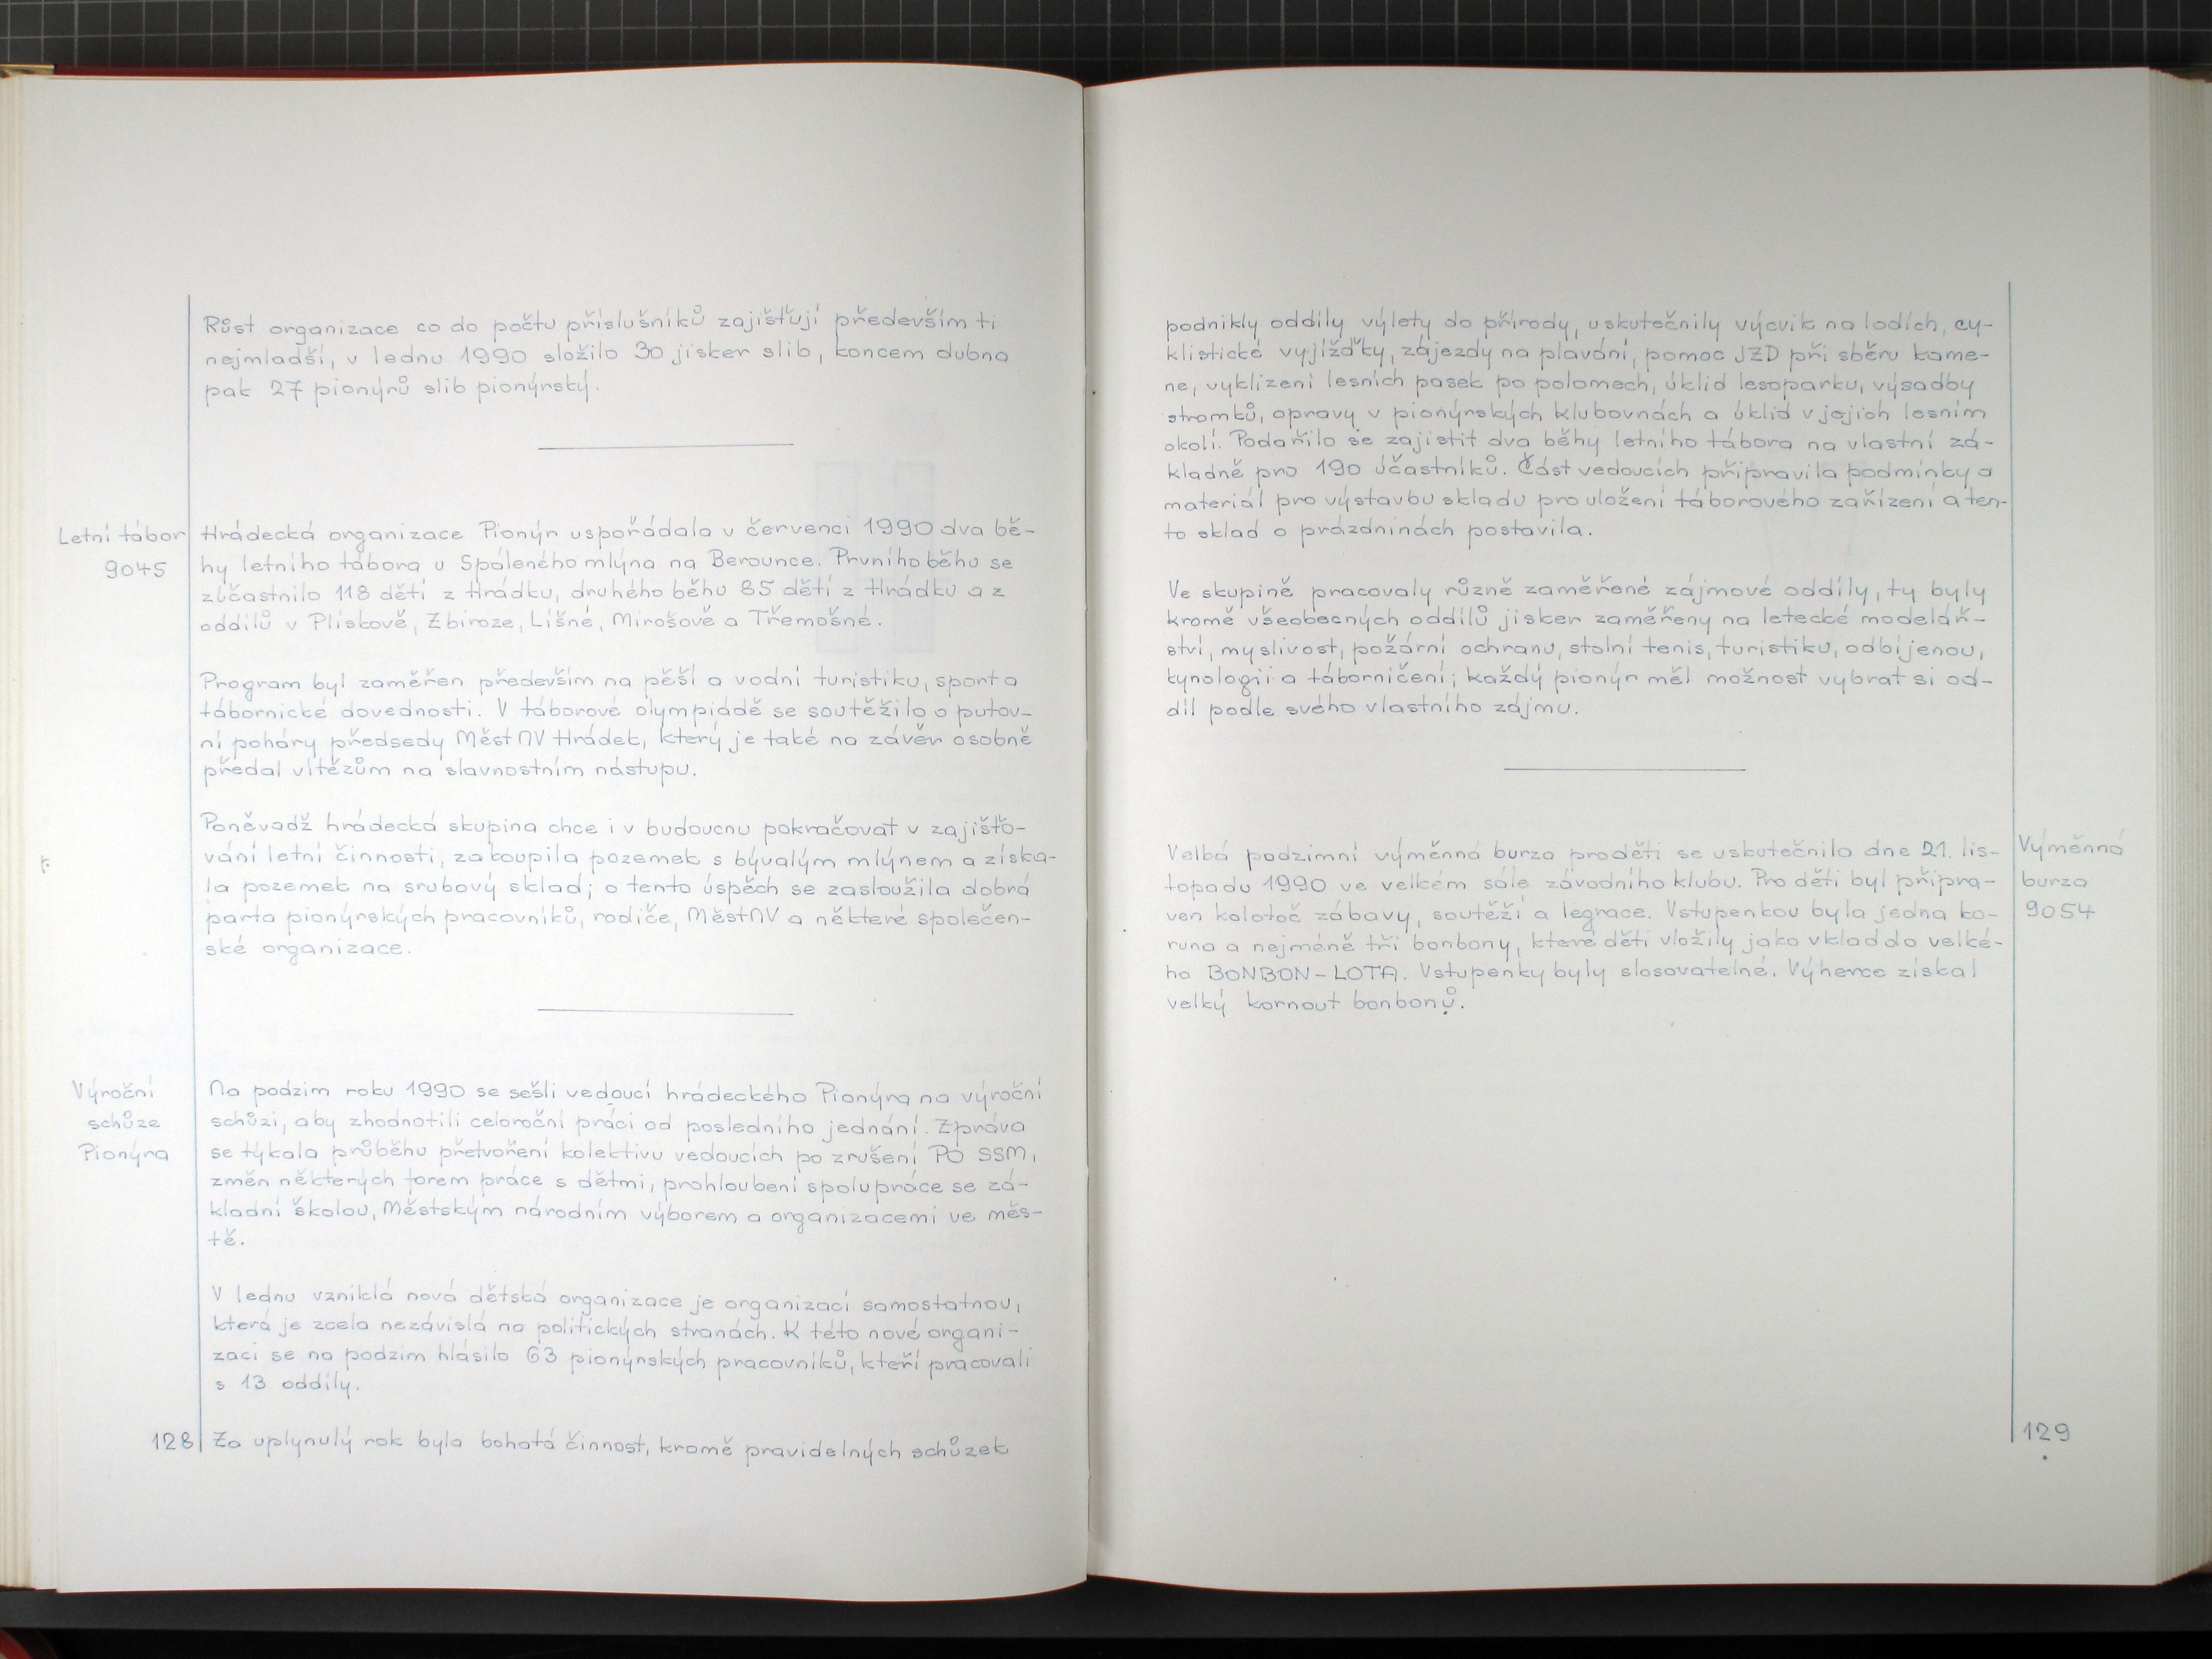 Růst organizace co do počtu příslušníků zajišťují především ti
nejmladší, v lednu 1990 složilo 30 jisker slib, koncem dubna
pak 27 pionýrů slib pionýrský.
Letní tábor
9045
Hrádecká organizace Pionýr uspořádala v červenci 1990 dva bě-
hy letního tábora u Spáleného mlýna na Berounce. Prvního běhu se
zúčastnilo 118 dětí z Hrádku, druhého běhu 85 dětí z Hrádku a z
oddílů v Plískově, Zbiroze, Líšné, Mirošově a Třemošné.
Program byl zaměřen především na pěší a vodní turistiku, sport a
tábornické dovednosti. V táborové olympiádě se soutěžilo o putov-
ní poháry předsedy MěstNV Hrádek, který je také na závěr osobně
předal vítězům na slavnostním nástupu.
Poněvadž hrádecká skupina chce i v budoucnu pokračovat v zajišťo-
vání letní činnosti, zakoupila pozemek s bývalým mlýnem a získa-
la pozemek na srubový sklad; o tento úspěch se zasloužila dobrá
parta pionýrských pracovníků, rodiče, MěstNV a některé společen-
ské organizace.
Výroční
schůze
Pionýra
Na podzim roku 1990 se sešli vedoucí hrádeckého Pionýra na výroční
schůzi, aby zhodnotili celoroční práci od posledního jednání. Zpráva
se týkala průběhu přetvoření kolektivu vedoucích po zrušení PO SSM,
změn některých forem práce s dětmi, prohloubení spolupráce se zá-
kladní školou, Městským národním výborem a organizacemi ve měs-
tě.
V lednu vzniklá nová dětská organizace je organizací samostatnou,
která je zcela nezávislá na politických stranách. K této nové organi-
zaci se na podzim hlásilo 63 pionýrských pracovníků, kteří pracovali
s 13 oddíly.
128
Za uplynulý rok byla bohatá činnost, kromě pravidelných schůzek
podnikly oddíly výlety do přírody, uskutečnily výcvik na lodích, cy-
klistické vyjížďky, zájezdy na plavání, pomoc JZD při sběru kame-
ne, vyklizení lesních pasek po polomech, úklid lesoparku, výsadby
stromků, opravy v pionýrských klubovnách a úklid v jejich lesním
okolí. Podařilo se zajistit dva běhy letního tábora na vlastní zá-
kladně pro 190 účastníků. Část vedoucích připravila podmínky a
materiál pro výstavbu skladu pro uložení táborového zařízení a ten-
to sklad o prázdninách postavila.
Ve skupině pracovaly různě zaměřené zájmové oddíly, ty byly
kromě všeobecných oddílů jisker zaměřeny na letecké modelář-
ství, myslivost, požární ochranu, stolní tenis, turistiku, odbíjenou,
kynologii a táborničení; každý pionýr měl možnost vybrat si od-
díl podle svého vlastního zájmu.
Velká podzimní výměnná burza pro děti se uskutečnila dne 21. lis-
topadu 1990 ve velkém sále závodního klubu. Pro děti byl připra-
ven kolotoč zábavy, soutěží a legrace. Vstupenkou byla jedna ko-
runa a nejméně tři bonbony, které děti vložily jako vklad do velké-
ho BONBON-LOTA. Vstupenky byly slosovatelné. Výherce získal
velký kornout bonbonů.
Výměnná
burza
9054
129